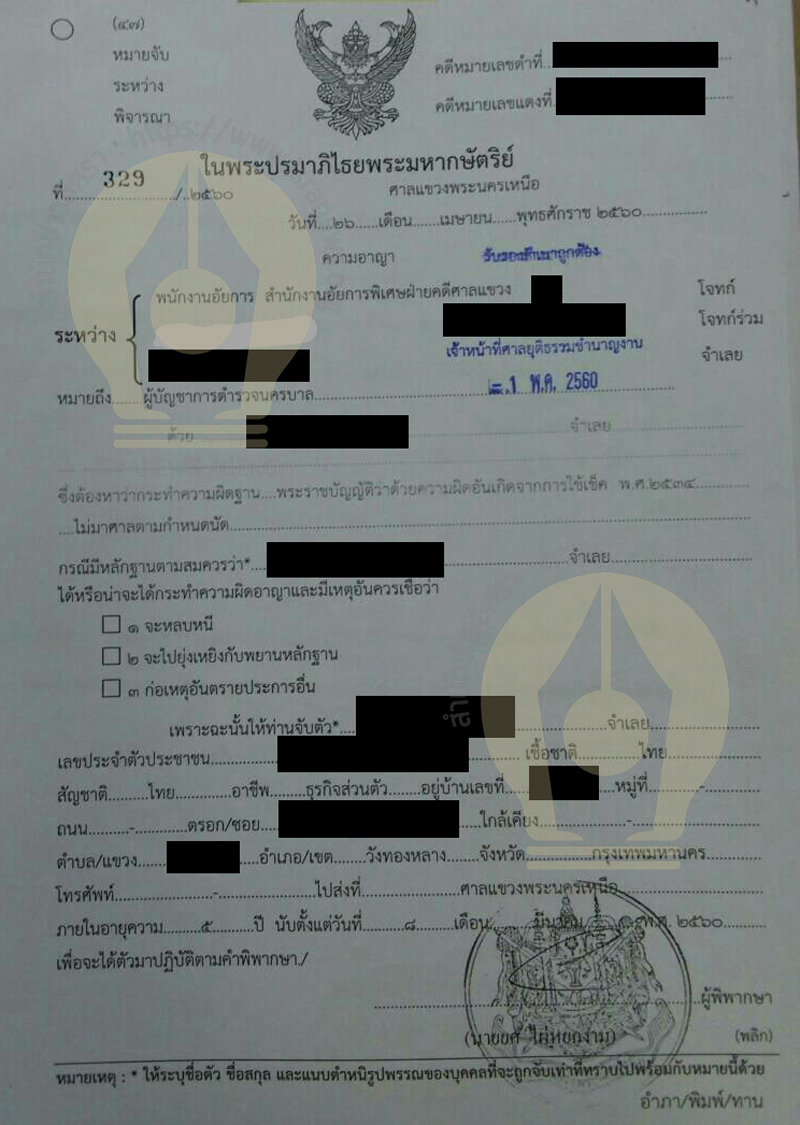 (๔๗)
หมายจับ
ระหว่าง
พิจารณา
คดีหมายเลขดำที่
คดีหมายเลขแดงที่
ในพระปรมาภิไธยพระมหากษัตริย์
ที่ 329 / ๒๕๖๐
ศาลแขวงพระนครเหนือ
วันที่ ๒๖ เดือน เมษายน พุทธศักราช ๒๕๖๐
ความอาญา
รับรองสำเนาถูกต้อง
พนักงานอัยการ สำนักงานอัยการพิเศษฝ่ายคดีศาลแขวง โจทก์
โจทก์ร่วม
ระหว่าง
เจ้าหน้าที่ศาลยุติธรรมชำนาญงาน
จำเลย
หมายถึง ผู้บัญชาการตำรวจนครบาล
1 พ.ค. 2560
ด้วย จำเลย
ซึ่งต้องหาว่ากระทำความผิดฐาน พระราชบัญญัติว่าด้วยความผิดอันเกิดจากการใช้เช็ค พ.ศ.๒๕๓๔
ไม่มาศาลตามกำหนดนัด
กรณีมีหลักฐานตามสมควรว่า* จำเลย
ได้หรือน่าจะได้กระทำความผิดอาญาและมีเหตุอันควรเชื่อว่า
๑ จะหลบหนี
๒ จะไปยุ่งเหยิงกับพยานหลักฐาน
๓ ก่อเหตุอันตรายประการอื่น
เพราะฉะนั้นให้ท่านจับตัว* จำเลย
เลขประจำตัวประชาชน เชื้อชาติ ไทย
สัญชาติ ไทย อาชีพ ธุรกิจส่วนตัว อยู่บ้านเลขที่ หมู่ที่ -
ถนน - ตรอก/ซอย ใกล้เคียง -
ตำบล/แขวง อำเภอ/เขต วังทองหลาง จังหวัด กรุงเทพมหานคร
โทรศัพท์ - ไปส่งที่ ศาลแขวงพระนครเหนือ
ภายในอายุความ ๕ ปี นับตั้งแต่วันที่ ๘ เดือน มีนาคม พ.ศ. ๒๕๖๐
เพื่อจะได้ตัวมาปฏิบัติตามคำพิพากษา./
ผู้พิพากษา
(นายยศ ไผ่หยกงาม)
(พลิก)
หมายเหตุ : * ให้ระบุชื่อตัว ชื่อสกุล และแนบตำหนิรูปพรรณของบุคคลที่จะถูกจับเท่าที่ทราบไปพร้อมกับหมายนี้ด้วย
อำภา/พิมพ์/ทาน